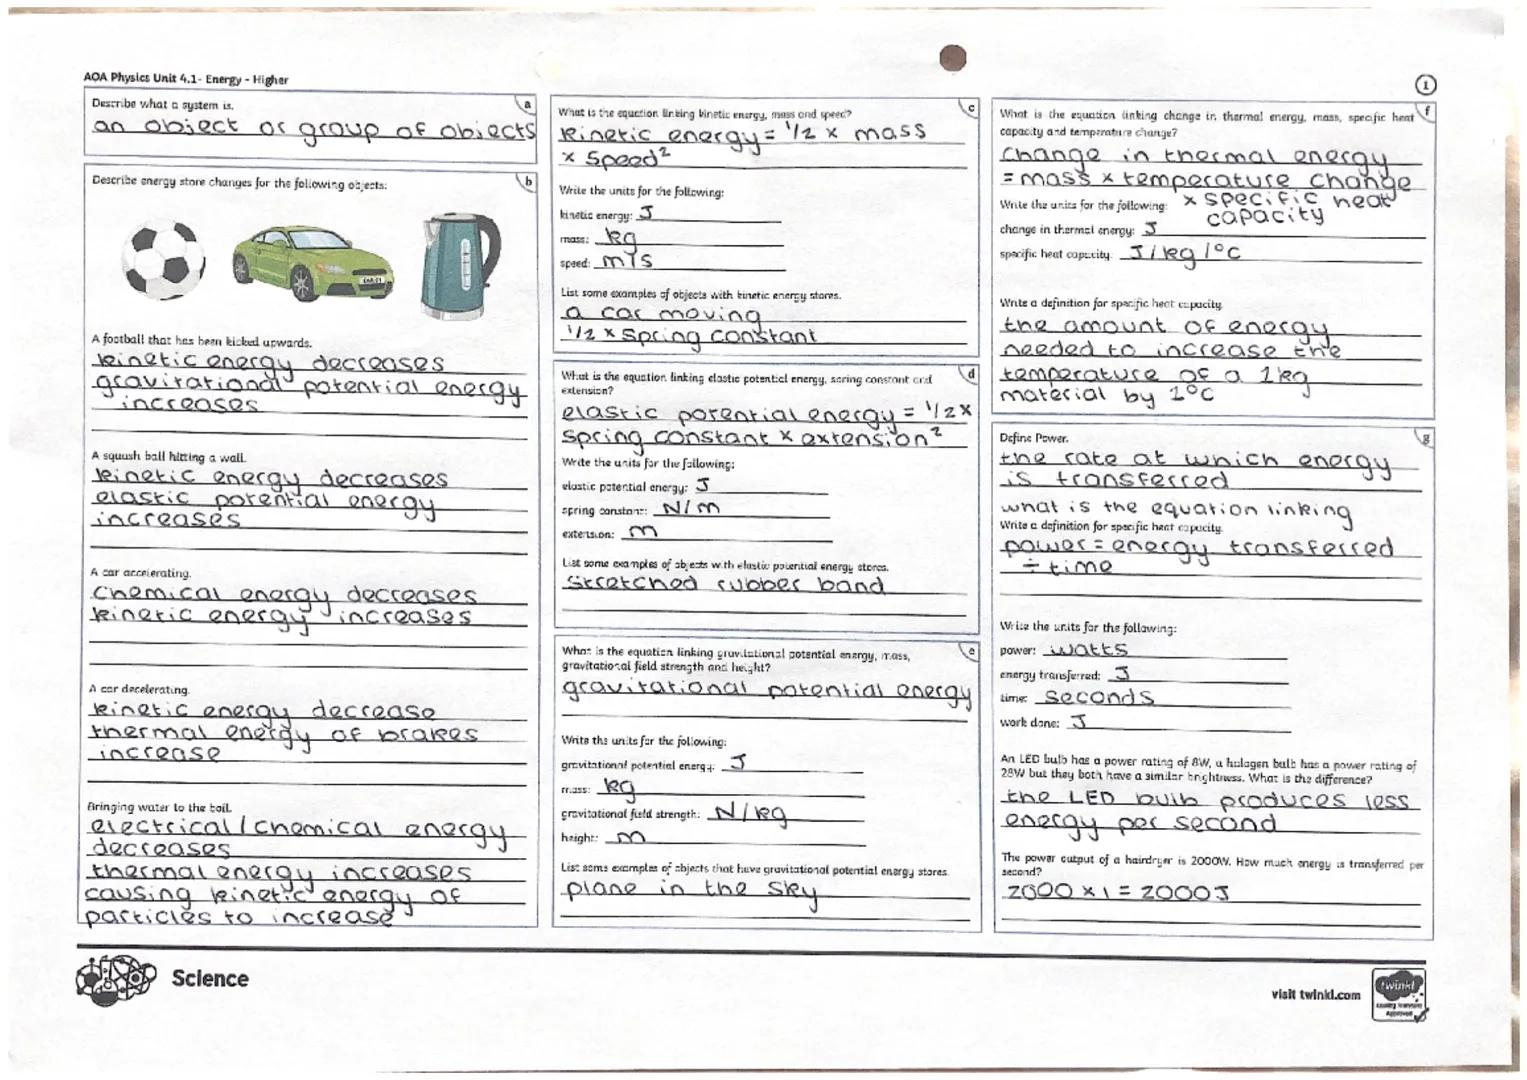 AQA Physics Unit 4.1- Energy - Higher
1
a
Describe what a system is.
an object or group of objects
b
Describe energy store changes for the following objects:
A football that has been kicked upwards.
kinetic energy decreases
gravitational potential energy
increases
A squash ball hitting a wall.
kinetic energy decreases
elastic potential energy
increases
A car accelerating.
chemical energy decreases
kinetic energy increases
A car decelerating.
kinetic energy decrease
thermal energy of brakes
increase
Bringing water to the boil.
electrical/chemical energy
decreases
thermal energy increases
causing kinetic energy of
particles to increase
c
What is the equation linking kinetic energy, mass and speed?
kinetic energy = 1/2 × mass
× speed²
Write the units for the following:
kinetic energy: J
mass: kg
speed: m/s
List some examples of objects with kinetic energy stores.
a car moving
1/2 × spring constant
d
What is the equation linking elastic potential energy, spring constant and
extension?
elastic potential energy = 1/2 ×
spring constant × extension²
Write the units for the following:
elastic potential energy: J
spring constant: N/m
extension: m
List some examples of objects with elastic potential energy stores.
stretched rubber band
e
What is the equation linking gravitational potential energy, mass,
gravitational field strength and height?
gravitational potential energy
Write the units for the following:
gravitational potential energy: J
mass: kg
gravitational field strength: N/kg
height: m
List some examples of objects that have gravitational potential energy stores.
plane in the sky
f
What is the equation linking change in thermal energy, mass, specific heat
capacity and temperature change?
change in thermal energy
= mass × temperature change
× specific heat
capacity
Write the units for the following:
change in thermal energy: J
specific heat capacity: J/kg/°C
Write a definition for specific heat capacity.
the amount of energy
needed to increase the
temperature of a 1kg
material by 1°C
g
Define Power.
the rate at which energy
is transferred
what is the equation linking
Write a definition for specific heat capacity.
power = energy transferred
÷ time
Write the units for the following:
power: watts
energy transferred: J
time: seconds
work done: J
An LED bulb has a power rating of 8W, a halogen bulb has a power rating of
28W but they both have a similar brightness. What is the difference?
the LED bulb produces less
energy per second
The power output of a hairdryer is 2000W. How much energy is transferred per
second?
2000 × 1 = 2000J
Science
visit twinkl.com
twinkl